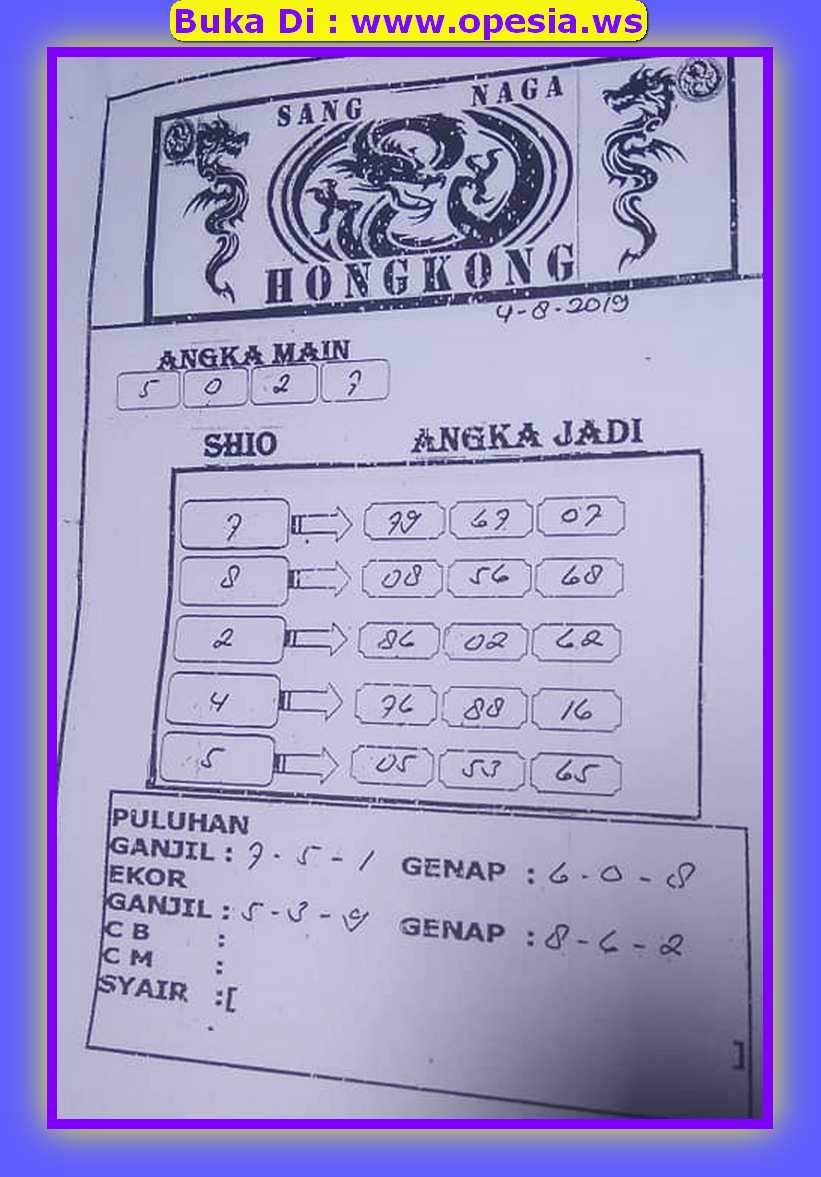 Buka Di : www.opesia.ws
SANG NAGA
HONGKONG
4-8-2019
ANGKA MAIN
5 0 2 7
SHIO ANGKA JADI
7 79 67 07
8 08 56 68
2 86 02 62
4 76 88 16
5 05 53 65
PULUHAN
GANJIL : 7 - 5 - 1 GENAP : 6 - 0 - 8
EKOR
GANJIL : 5 - 3 - 9 GENAP : 8 - 6 - 2
C B :
C M :
SYAIR :[
]